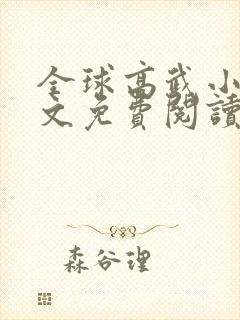 全球高武小
文免費閱讀
森谷理